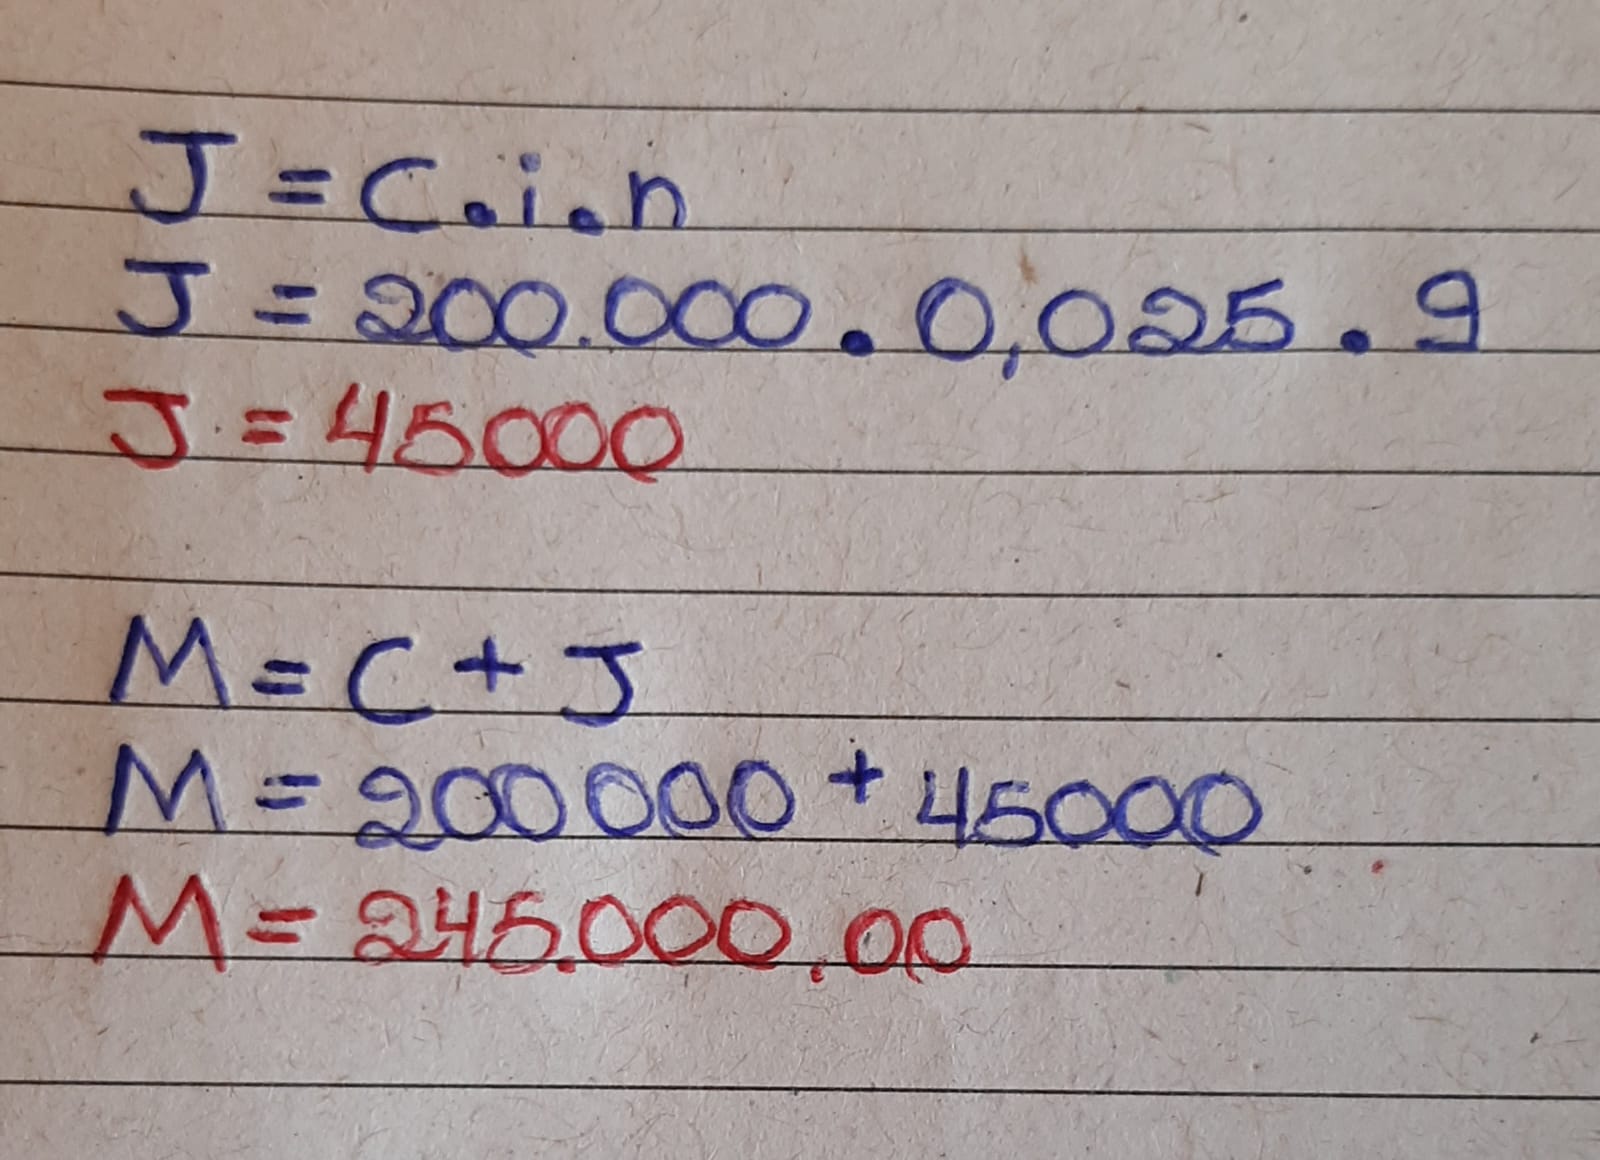 J = C.i.n
J = 200.000 . 0,025 . 9
J = 45000
M = C + J
M = 200000 + 45000
M = 245.000,00